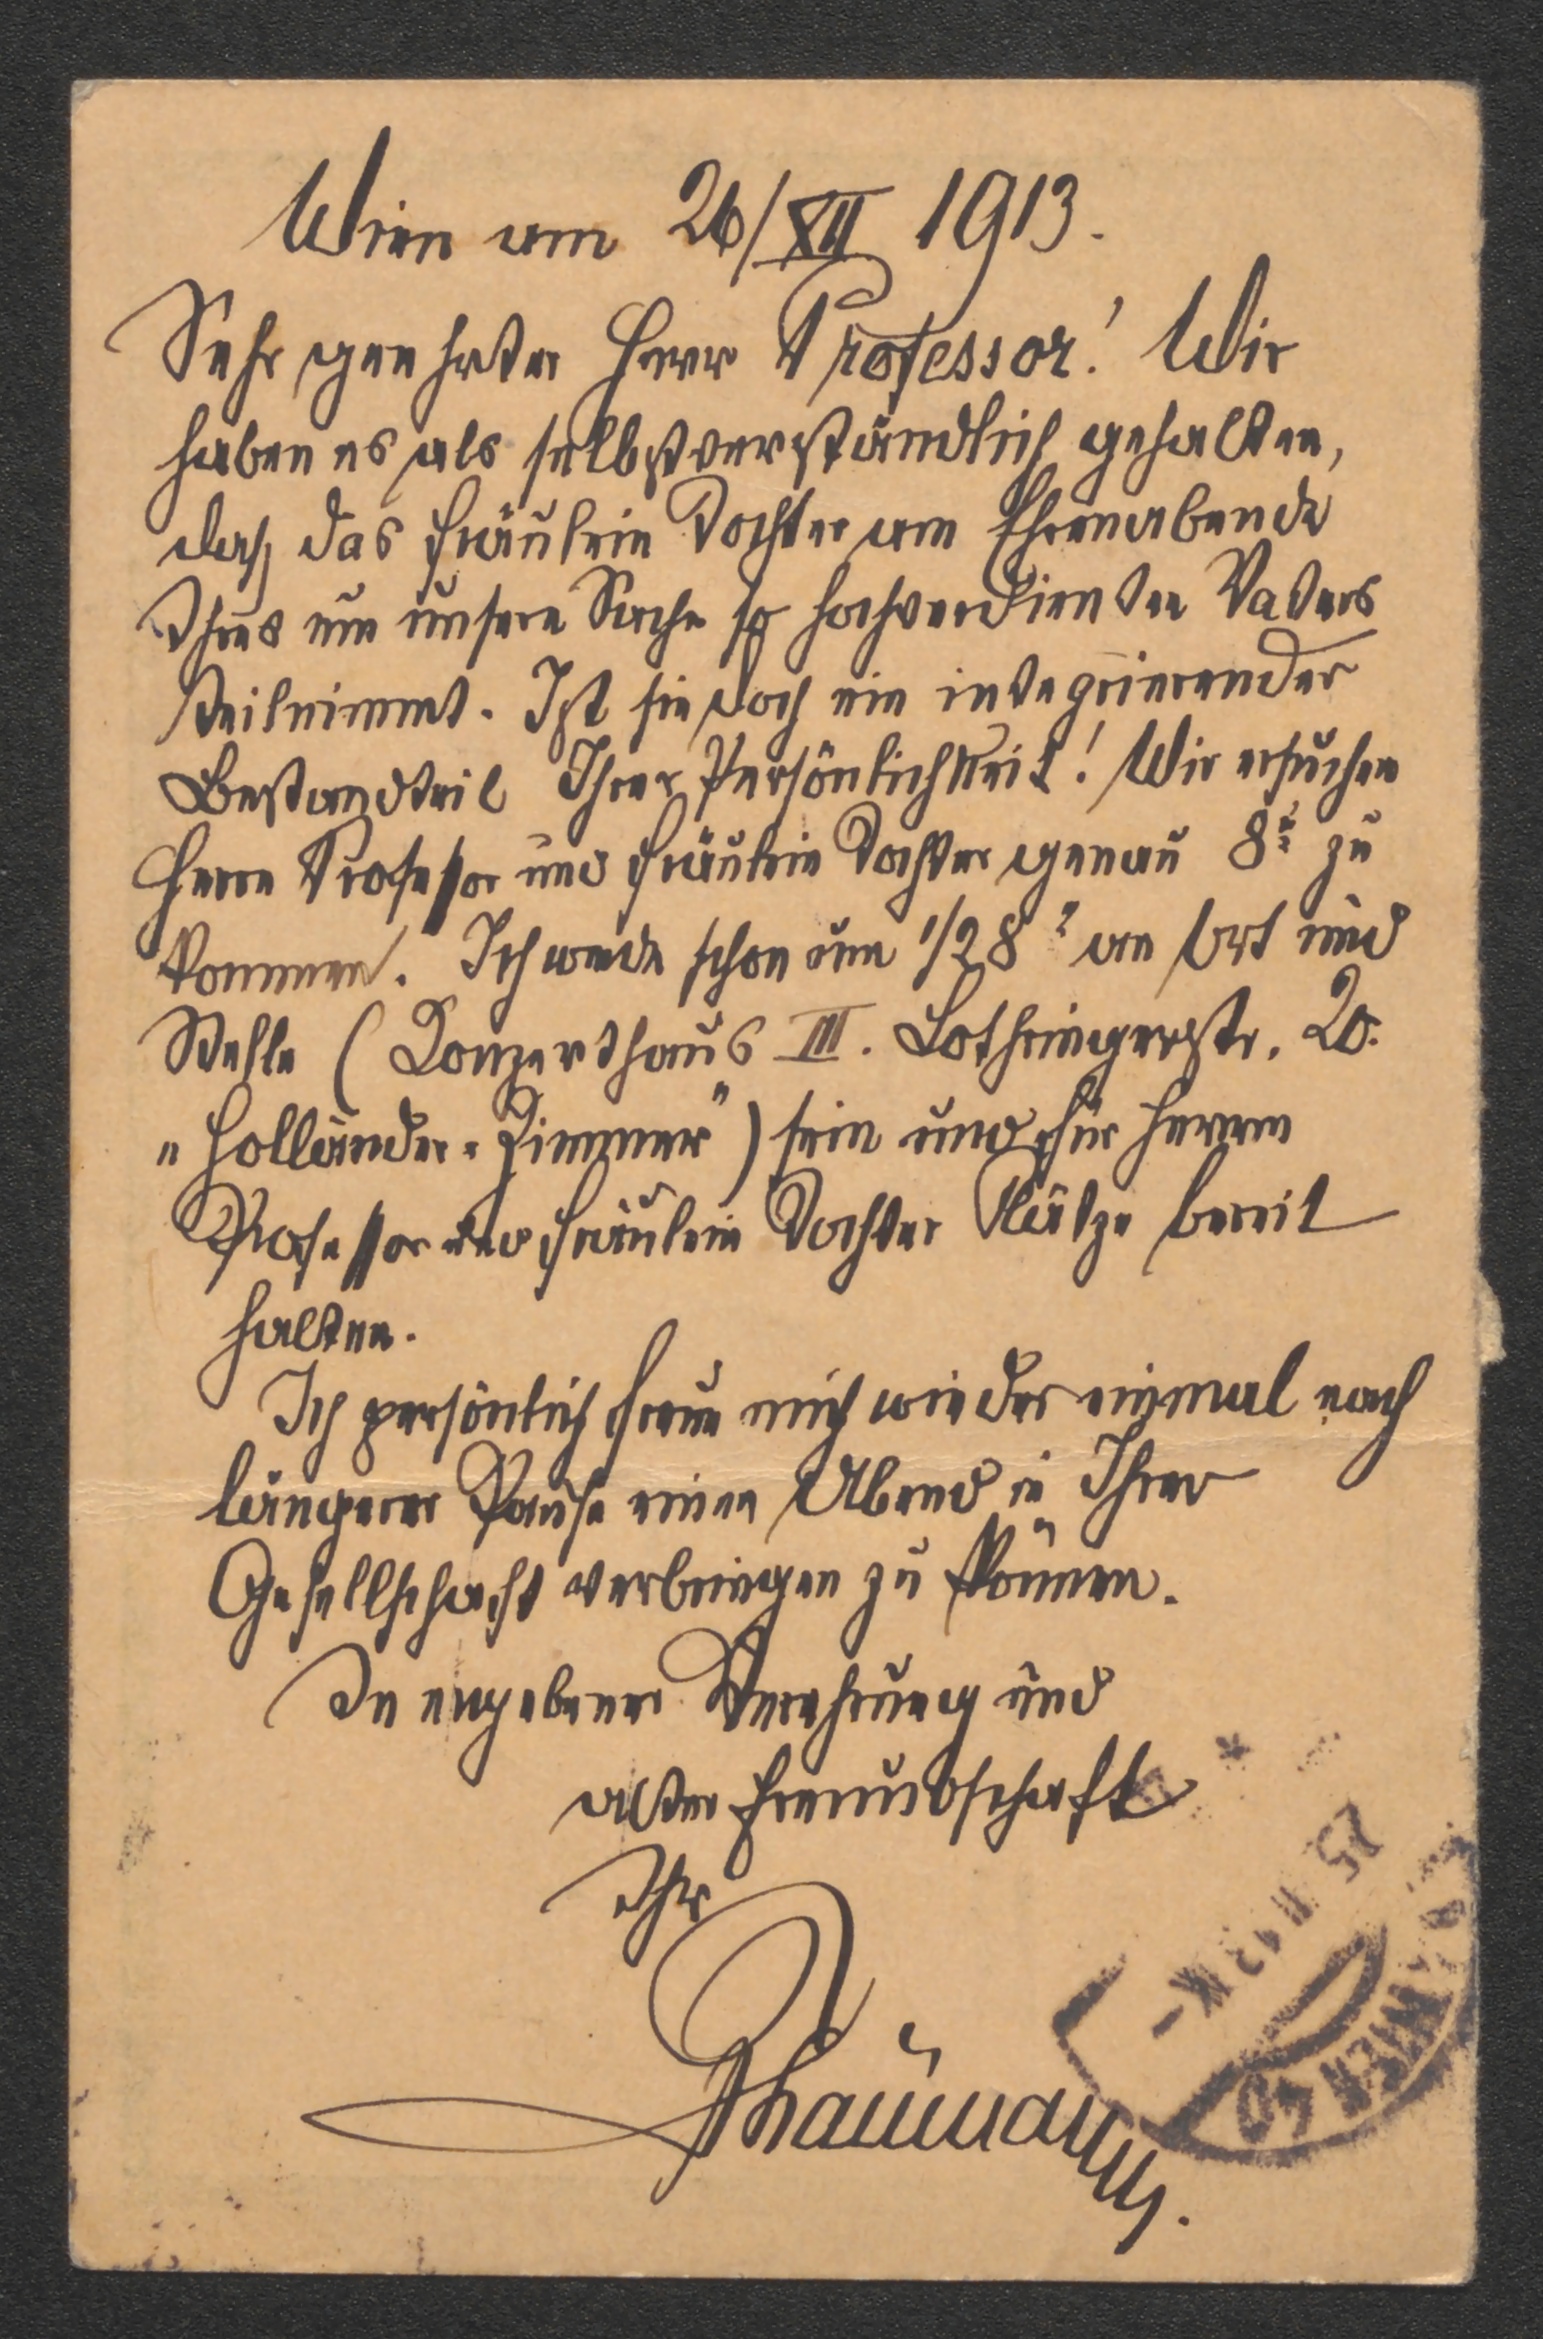 Wien am 26/XII 1913.
Sehr geehrter Herr Professor! Wir
haben es als selbstverständlich gehalten,
daß das Fräulein Tochter am Ehrenabende
Ihres um unsere Sache so hochverdienten Vaters
teilnimmt. Ist sie doch ein integrierender
Bestandteil Ihrer Persönlichkeit! Wir ersuchen
Herrn Professor und Fräulein Tochter genau 8 zu
kommen. Ich werde schon um 1/2 8 an Ort und
Stelle (Konzerthaus III. Lothringerstr. 20.
"Holländer-Zimmer") sein und für Herrn
Professor und Fräulein Tochter Plätze bereit
halten.
Ich persönlich freue mich wieder einmal nach
längerer Pause einen Abend in Ihrer
Gesellschaft verbringen zu können.
In ergebener Verehrung und
alter Freundschaft
Ihr
WIEN 40